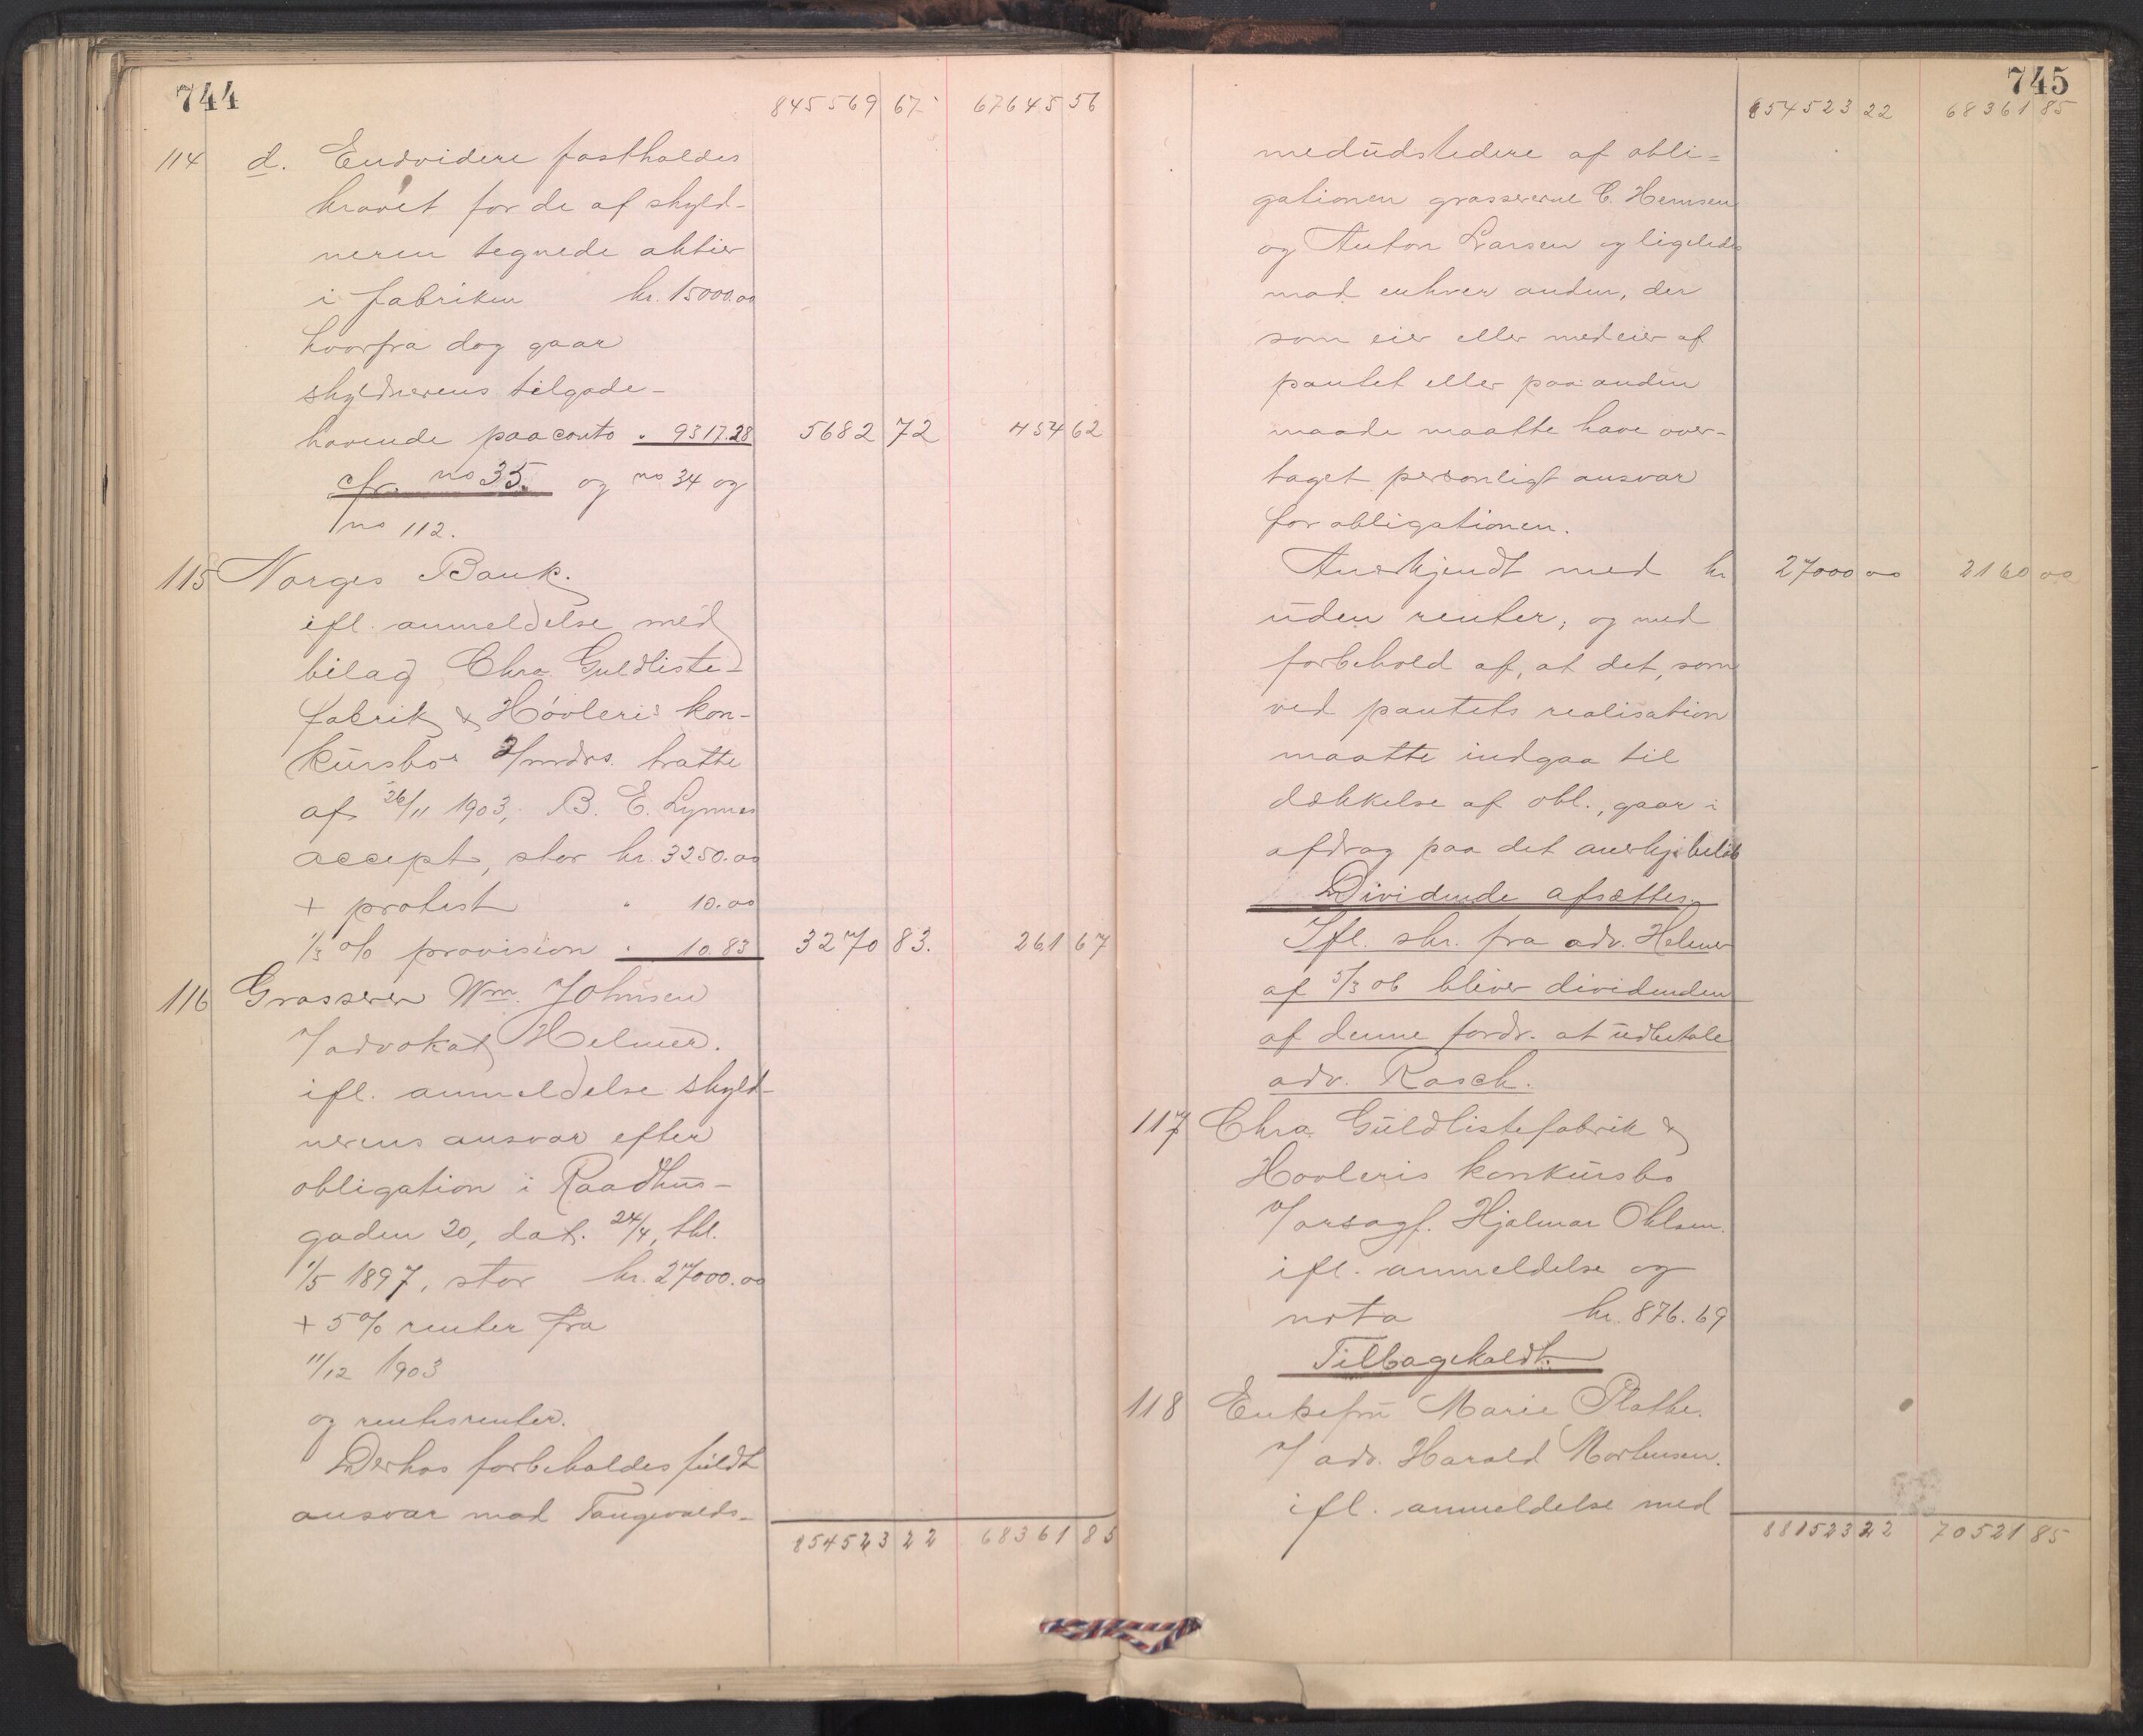 744
845569 67 67645 56
114 d. Endvidere fastholdes
kravet for de af skyld-
neren tegnede aktier
i fabriken kr. 15000.00
hvorfra dog gaar
skyldnerens tilgode-
havende paa conto " 9317.28 5682 72 454 62
cfr. no 35. og no 34 og
no 112.
115 Norges Bank.
ifl. anmeldelse med
bilag Chra Guldliste-
fabrik & Høvleris kon-
kursbos 3/mdrs. tratte
af 26/11 1903, B. E. Lynnes
accept, stor kr. 3250.00
+ protest " 10.00
1/3 % provision " 10.83 3270 83. 261 67
116 Grosserer Wm. Johnsen
v/advokat Helmer.
ifl. anmeldelse skyld-
nerens ansvar efter
obligation i Raadhus-
gaden 20, dat. 24/4, thl.
1/5 1897, stor kr. 27000.00
+ 5 % renter fra
11/12 1903
og rentesrenter.
Derhos forbeholdes fuldt
ansvar mod Tangevalds-
854523 22 68361 85
745
854523 22 68361 85
medudstedere af obli=
gationen grossererne C. Hermsen
og Anton Larsen og ligeledes
mod enhver anden, der
som eier eller medeier af
pantet eller paa anden
maade maatte have over-
taget personligt ansvar
for obligationen.
Anerkjendt med kr 27000 00 2160 00
uden renter, og med
forbehold af, at det, som
ved pantets realisation
maatte indgaa til
dækkelse af obl., gaar i
afdrag paa det anerkj. beløb
Dividende afsættes.
Ifl. skr. fra adv. Helmer
af 5/3 06 bliver dividenden
af denne fordr. at udbetale
adv. Rasch.
117 Chra Guldlistefabrik &
Hovleris konkursbo
v/orsagf. Hjalmar Ohlsen.
ifl. anmeldelse og
nota kr. 876.69
Tilbagekaldt.
118 Enkefru Marie Plathe.
v/ adv. Harald Mortensen.
ifl. anmeldelse med
881523 22 70521 85